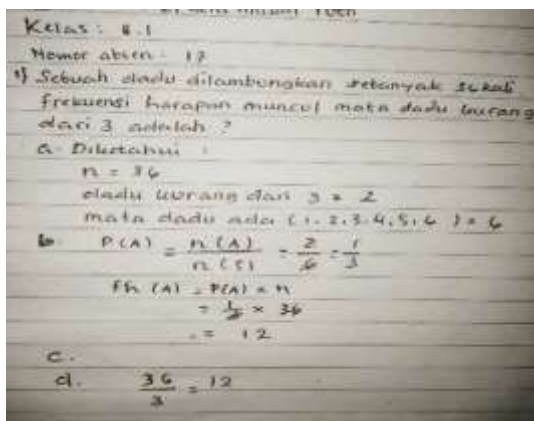 Kelas : 8.1
Nomor absen : 17
1) Sebuah dadu dilambungkan sebanyak 36 kali
frekuensi harapan muncul mata dadu kurang
dari 3 adalah ?
a. Diketahui :
n = 36
dadu kurang dari 3 = 2
mata dadu ada (1.2.3.4.5.6) = 6
b. P(A) = n(A) / n(S) = 2/6 = 1/3
Fh (A) = P(A) × n
= 1/3 × 36
= 12
c.
d. 36/3 = 12